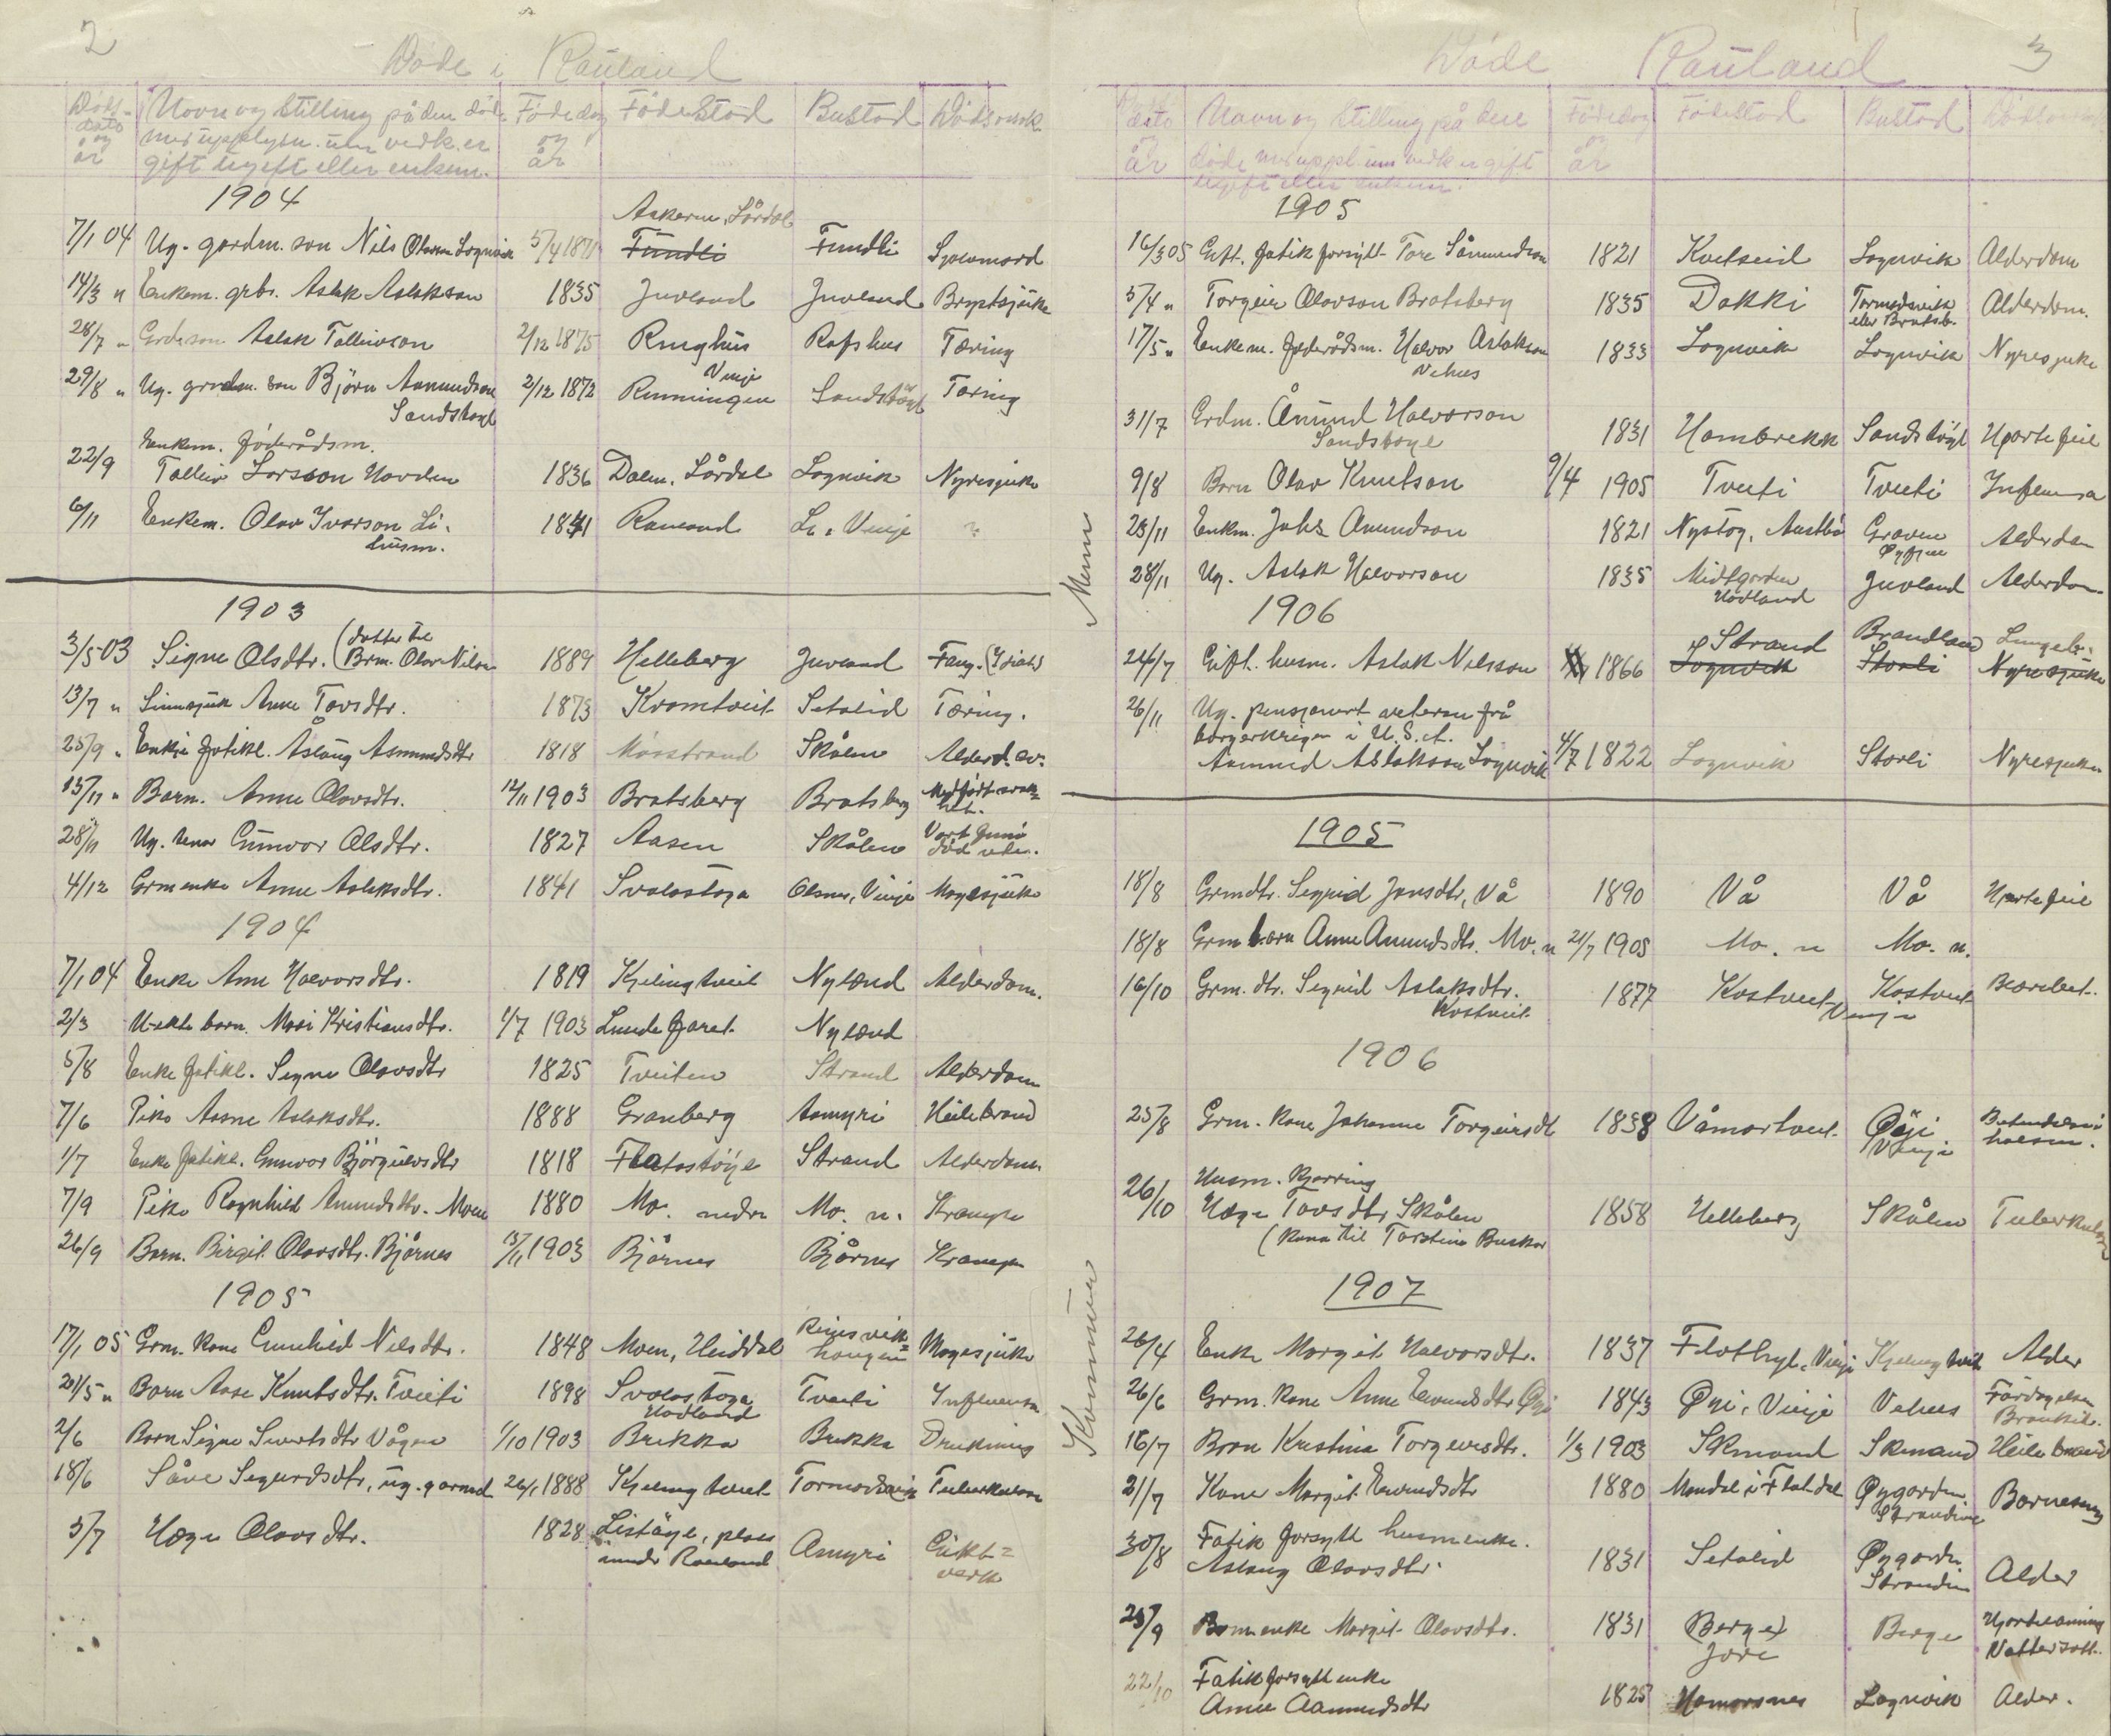 2
Døde i Rauland
Døds-dato og år | Navn og stilling på den døde mer upplysn. um vedk. er gift ugift eller enkem. | Fødedag og år | Fødestad | Bustad | Dødsorsak
1904
7/1 04 Ug. gardm. son Nils Olavson Lognvik 5/4 1871 Aakern, Lårdal Fundli Fundli Sjølvmord
14/3 " Enkem. grbr. Aslak Aslakson 1835 Juvland Juvland Brystsjuke
28/7 " Grdson Aslak Talleivson 2/12 1875 Ringhus Rafshus Tæring
29/8 " Ug. grdm. son Bjørn Aamundson Sandstøyl 2/12 1872 Rinningen Vinje Sandstøyl Tæring
22/9 Enkem. føderådsm. Talleiv Larsson Norden 1836 Dalen, Lårdal Lognvik Nyresjuke
6/11 Enkem. Olav Ivarson Li. husm. 1841 Rauland Li, Vinje "
1903
3/5 03 Signe Olsdtr. (dotter til Brm. Olav Nilson 1889 Helleberg Juvland Fang. (Idiot)
13/7 " Sinnsjuk Anne Tovsdtr. 1873 Kromtveit Setalid Tæring.
25/9 " Enkje fatikl. Åslaug Asmundsdtr 1818 Mårstrand Skålen Alderd. sv.
13/11 " Barn. Anne Olavsdtr. 12/11 1903 Bratsberg Bratsberg Medfødt svakhet.
28/11 Ug. tenar Gunvor Olsdtr. 1827 Aasen Skålen Vart funni død ute.
4/12 Grmenke Anne Aslaksdtr. 1841 Svalastoga Olsnes, Vinje Magesjuke
1904
7/1 04 Enke Anne Halvorsdtr. 1819 Kjelingtveit Nyland Alderdom.
2/3 U-ekte barn. Mari Kristiansdtr. 1/7 1903 Lundefaret Nyland
5/8 Enke fatikl. Signe Olavsdtr 1825 Tveiten Strand Alderdom
7/6 Pike Aasne Aslaksdtr. 1888 Granberg Aamyri Heilebrand
1/7 Enke fatikl. Gunvor Bjørgulvsdtr 1818 Flatastøyl Strand Alderdom
7/9 Pike Ragnhild Amundsdtr. Moen 1880 Mo. nedre Mo. n. Krampe
26/9 Barn. Birgit Olavsdtr. Bjårnes 13/11 1903 Bjårnes Bjårnes Krampe
1905
17/1 05 Grm. kone Gunhild Nilsdtr. 1848 Moen, Heiddal haugen Magesjuke
20/5 " Barn Aase Knutsdtr. Tveiti 1898 Svalastoga Hødland Tveiti Influensa
2/6 Barn Signe Sivertsdtr Vågen 1/10 1903 Brekka Brekka Drukning
18/6 Såve Sigurdsdtr, ug. gardmd 26/1 1888 Kjelingtveit Tormodsvik Tuberkulose
5/7 Hæge Olavsdtr. 1828 Listøyl, plass under Rauland Amyri Giktverk
Døde Rauland 3
dato år | Navn og stilling på den døde mer uppl. um vedk er gift ugift eller enkem. | Fødedag og år | Fødestad | Bustad | Dødsorsak
1905
16/3 05 Gift. fatik forsytt Tore Såmundson 1821 Kviteseid Lognvik Alderdom
5/4 " Torgeir Olavson Bratsberg 1835 Dakki Tormodsvik eller Bratsb. Alderdom.
17/5 " Enkem. føderådsm. Halvor Aslakson Vehus 1833 Lognvik Lognvik Nyresjuke
31/7 Grdm. Åmund Halvorson Sandstøyl 1831 Hambrekk Sandstøyl Hjartefeil
Menn
9/8 Barn Olav Knutson 9/4 1905 Tveiti Tveiti Influensa
23/11 Enkm. Johs Amundson 1821 Nystog, Austbø Graven Øyfjell Alderdom
28/11 Ug. Aslak Halvorson 1835 Midtgarden Hødland Juvland Alderdom
1906
24/7 Gift. husm. Aslak Nilsson 1866 Strand Lognvik Brandland Storli Lungebet. Nyresjuke
26/11 Ug. pensjonert veteran frå borgerkrigen i U.S.A. Aamund Aslakson Lognvik 4/7 1822 Lognvik Storli Nyresjuke
1905
18/8 Grmdtr. Sigrid Jonsdtr, Vå 1890 Vå Vå Hjartefeil
18/8 Grm barn Anne Amundsdtr. Mo. n 21/7 1905 Mo. n Mo. n.
16/10 Grm. dtr. Sigrid Aslaksdtr. Kostveit 1877 Kostveit Vinje Kostveit
1906
25/8 Grm. kone Johanne Torgeirsdt 1838 Våmartveit Øyi Vinje
26/10 Husm. kjerring Hæge Tovsdtr Skålen (kona til Torstein Buskar 1858 Helleberg Skålen Tuberkulose
Kvinnner
1907
26/4 Enke Margit Halvorsdtr. 1837 Flothyl, Vinje Kjelingtveit Alder
26/6 Grm. kone Anne Eivindsdtr Øyi 1843 Øyi, Vinje Vehus
16/7 Barn Kristine Torgeirsdtr. 1/3 1903 Skinand Skinand Heilebrand
21/7 Kone Margit Eivindsdtr 1880 Mandal i Flatdal Øygarden Strandine Barneseng
30/8 Fatik forsytt husmenke. Aslaug Olavsdtr. 1831 Setalid Øygarden Strandin Alder
23/9 Brmenke Margit Olavsdtr. 1831 (Berge) Jore Berge
22/10 Fatik forsytt enke Anne Aamundsdtr 1825 Hamarsnes Lognvik Alder.